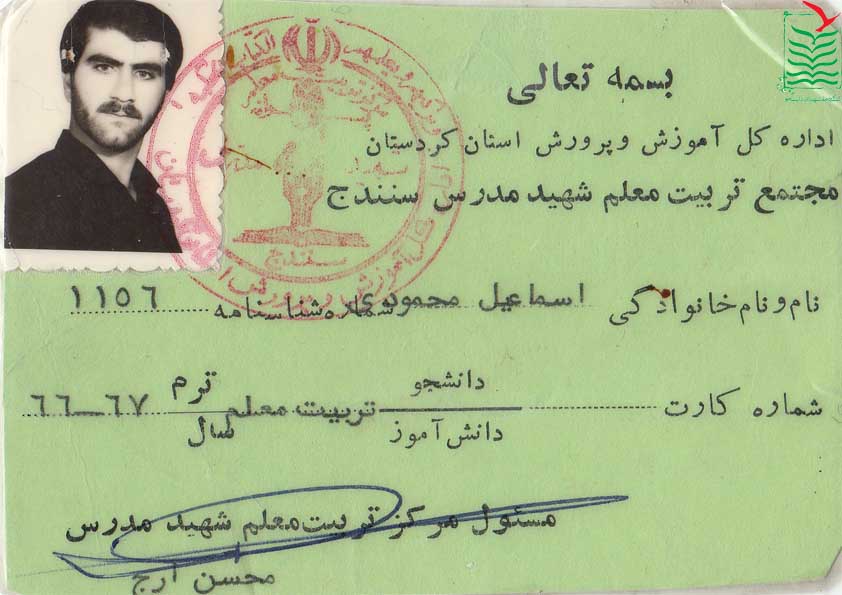 بسمه تعالی
اداره کل آموزش و پرورش استان کردستان
مجتمع تربیت معلم شهید مدرس سنندج
نام و نام خانوادگی اسماعیل محمودی شماره شناسنامه ۱۱۵۶
شماره کارت دانشجو تربیت معلم ترم ۶۷-۶۶
دانش آموز سال
مسئول مرکز تربیت معلم شهید مدرس
محسن ارج
سنندج